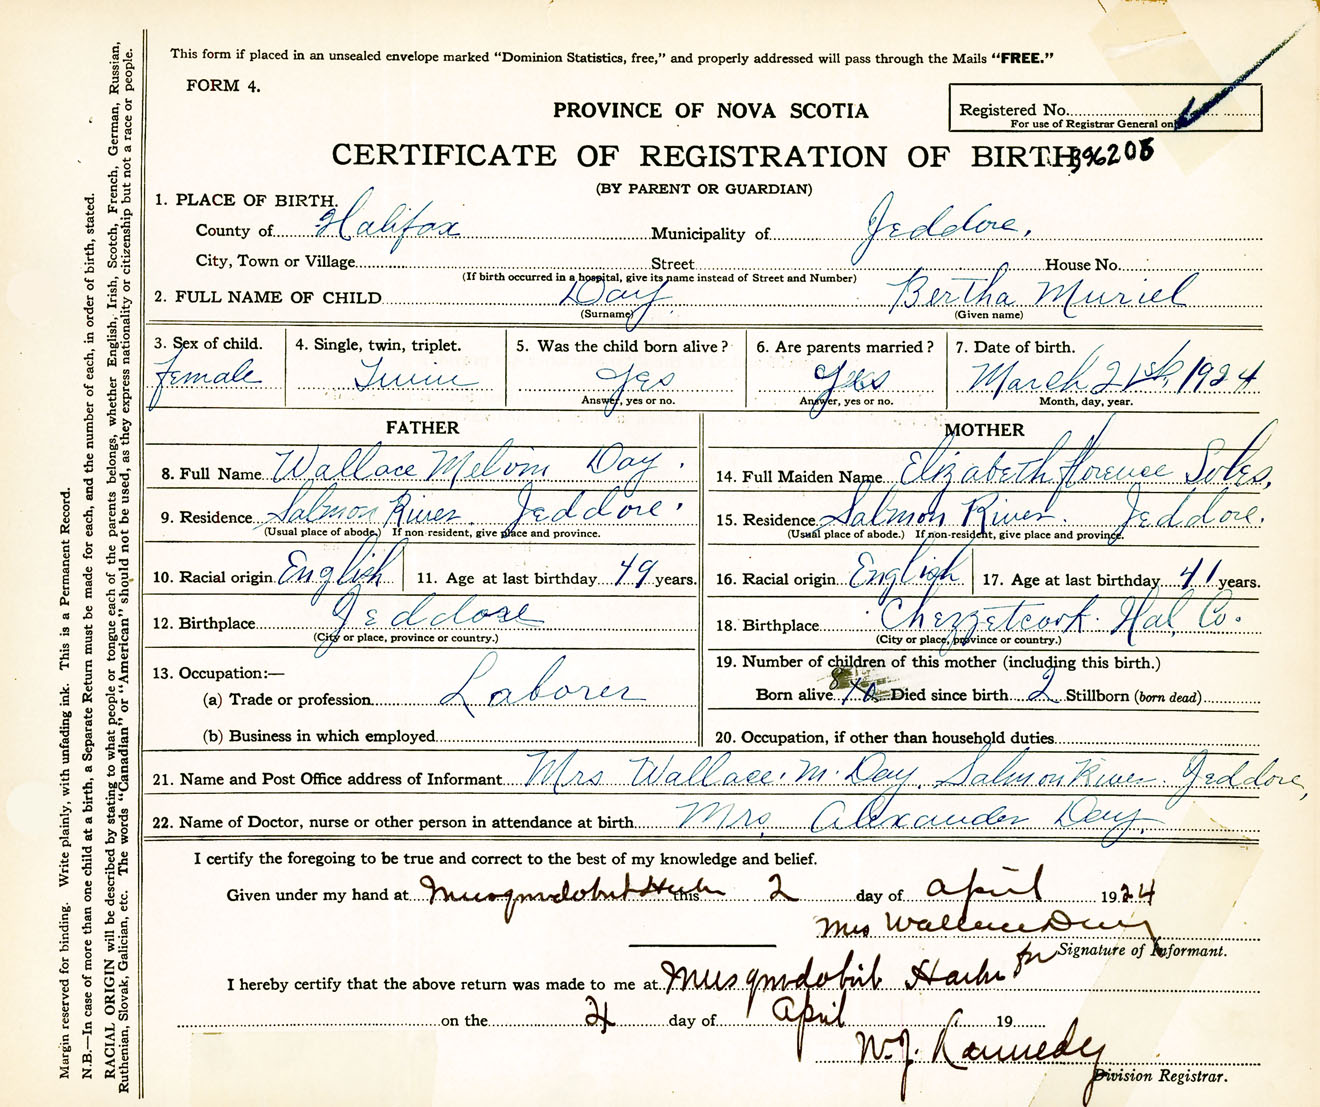 This form if placed in an unsealed envelope marked "Dominion Statistics, free," and properly addressed will pass through the Mails "FREE."
FORM 4.
PROVINCE OF NOVA SCOTIA
Registered No.
For use of Registrar General on
CERTIFICATE OF REGISTRATION OF BIRTH
(BY PARENT OR GUARDIAN)
1. PLACE OF BIRTH.
County of Halifax Municipality of Jeddore,
City, Town or Village Street House No.
(If birth occurred in a hospital, give its name instead of Street and Number)
2. FULL NAME OF CHILD Day Bertha Muriel
(Surname) (Given name)
3. Sex of child. 4. Single, twin, triplet. 5. Was the child born alive? 6. Are parents married? 7. Date of birth.
female Twin Yes Yes March 21st, 1924
Answer, yes or no. Answer, yes or no. Month, day, year.
FATHER MOTHER
8. Full Name Wallace Melvin Day. 14. Full Maiden Name Elizabeth florence
9. Residence Salmon River. Jeddore. 15. Residence Salmon River. Jeddore.
(Usual place of abode.) If non-resident, give place and province. (Usual place of abode.) If non-resident, give place and province.
10. Racial origin English 11. Age at last birthday 49 years. 16. Racial origin English 17. Age at last birthday 41 years.
12. Birthplace Jeddore 18. Birthplace Chezzetcook. Hal, Co.
(City or place, province or country.) (City or place, province or country.)
13. Occupation:— 19. Number of children of this mother (including this birth.)
(a) Trade or profession Laborer Born alive Died since birth 2 Stillborn (born dead)
(b) Business in which employed 20. Occupation, if other than household duties
21. Name and Post Office address of Informant Mrs Wallace. M. Day, Salmon River. Jeddore,
22. Name of Doctor, nurse or other person in attendance at birth Mrs, Alexander Day.
I certify the foregoing to be true and correct to the best of my knowledge and belief.
Given under my hand at this 2 day of april 1924
Mrs Wallace Day
Signature of Informant.
I hereby certify that the above return was made to me at
on the day of April 19
W. J. Kennedy
Division Registrar.
Margin reserved for binding. Write plainly, with unfading ink. This is a Permanent Record.
N.B.—In case of more than one child at a birth, a Separate Return must be made for each, and the number of each, in order of birth, stated.
RACIAL ORIGIN will be described by stating to what people or tongue each of the parents belongs, whether English, Irish, Scotch, French, German, Russian,
Ruthenian, Slovak, Galician, etc. The words "Canadian" or "American" should not be used, as they express nationality or citizenship but not a race or people.